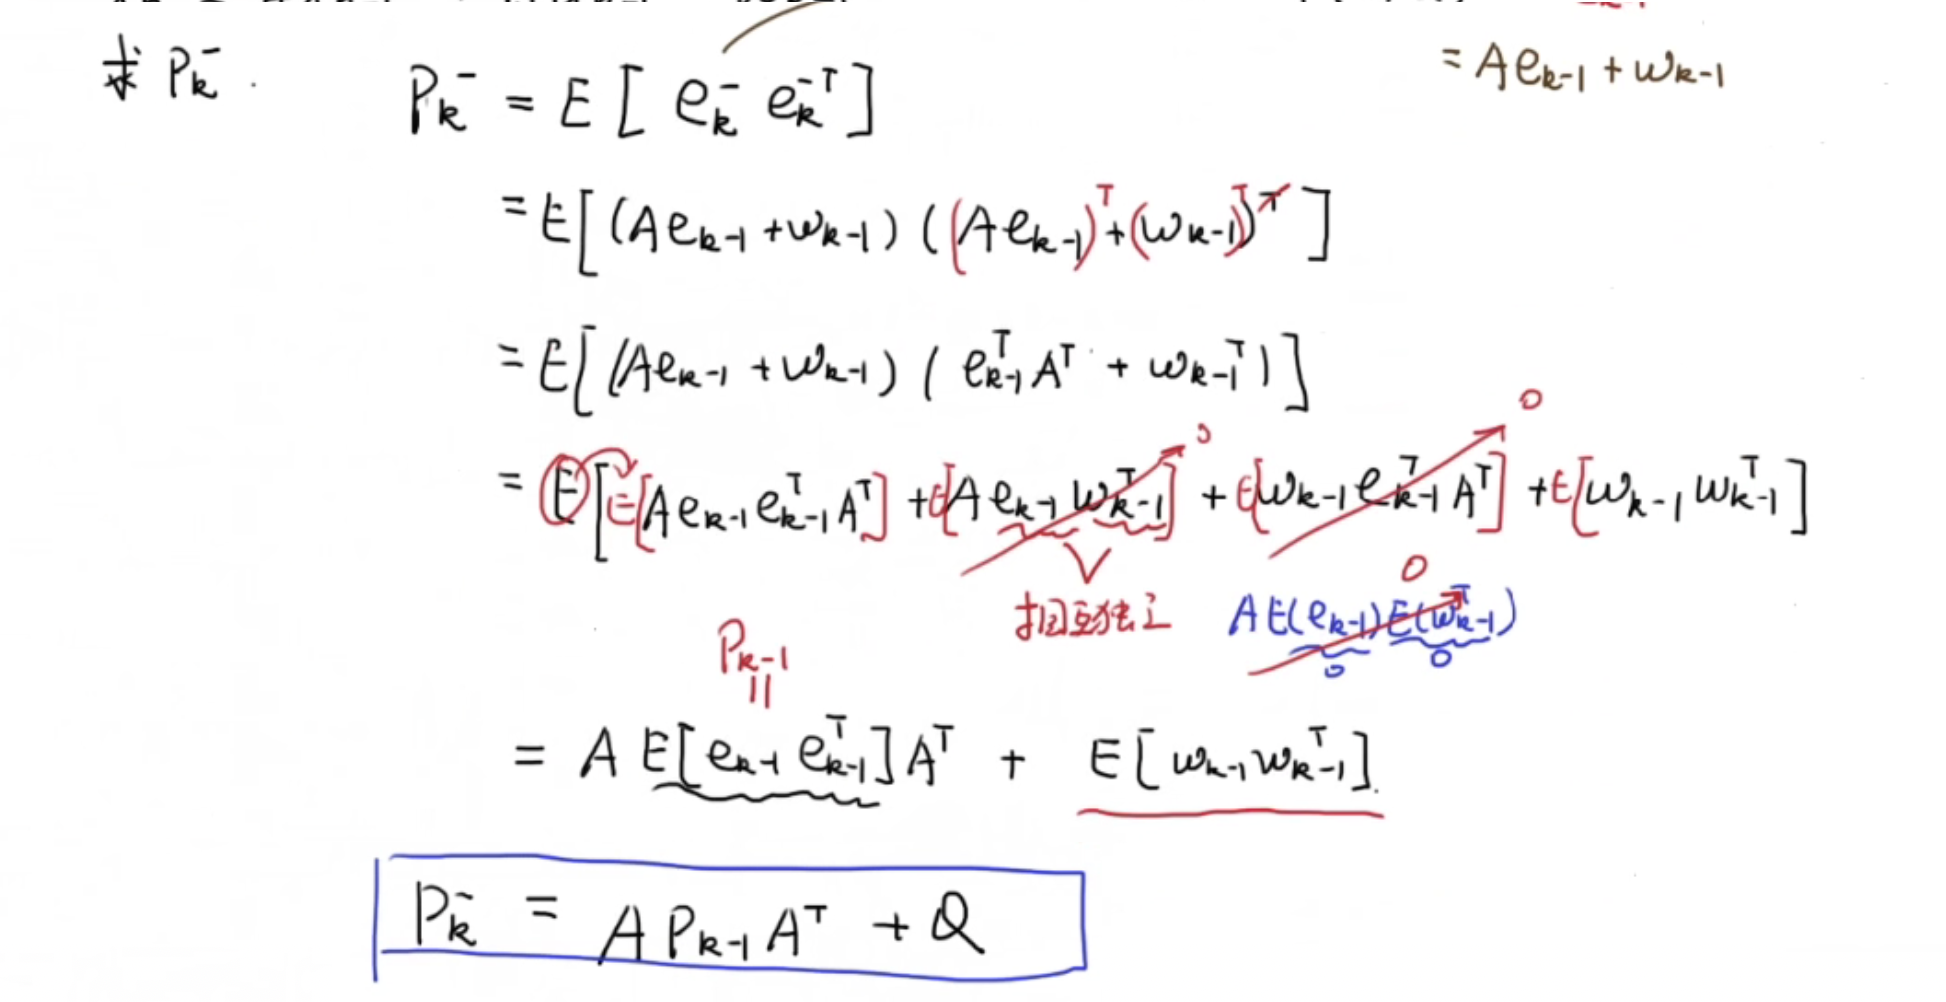 求 P_k^- .
= Ae_{k-1} + w_{k-1}
P_k^- = E [ e_k^- e_k^{-T} ]
= E[ (Ae_{k-1} + w_{k-1}) ( (Ae_{k-1})^T + (w_{k-1})^T )^T ]
= E[ (Ae_{k-1} + w_{k-1}) ( e_{k-1}^T A^T + w_{k-1}^T ) ]
0 0
= E [ E[Ae_{k-1} e_{k-1}^T A^T] + E[Ae_{k-1} w_{k-1}^T] + E[w_{k-1} e_{k-1}^T A^T] + E[w_{k-1} w_{k-1}^T ]
0
相互独立 A E(e_{k-1}) E(w_{k-1}^T)
0 0
P_{k-1}
||
= A E[e_{k-1} e_{k-1}^T] A^T + E[w_{k-1} w_{k-1}^T].
P_k^- = A P_{k-1} A^T + Q